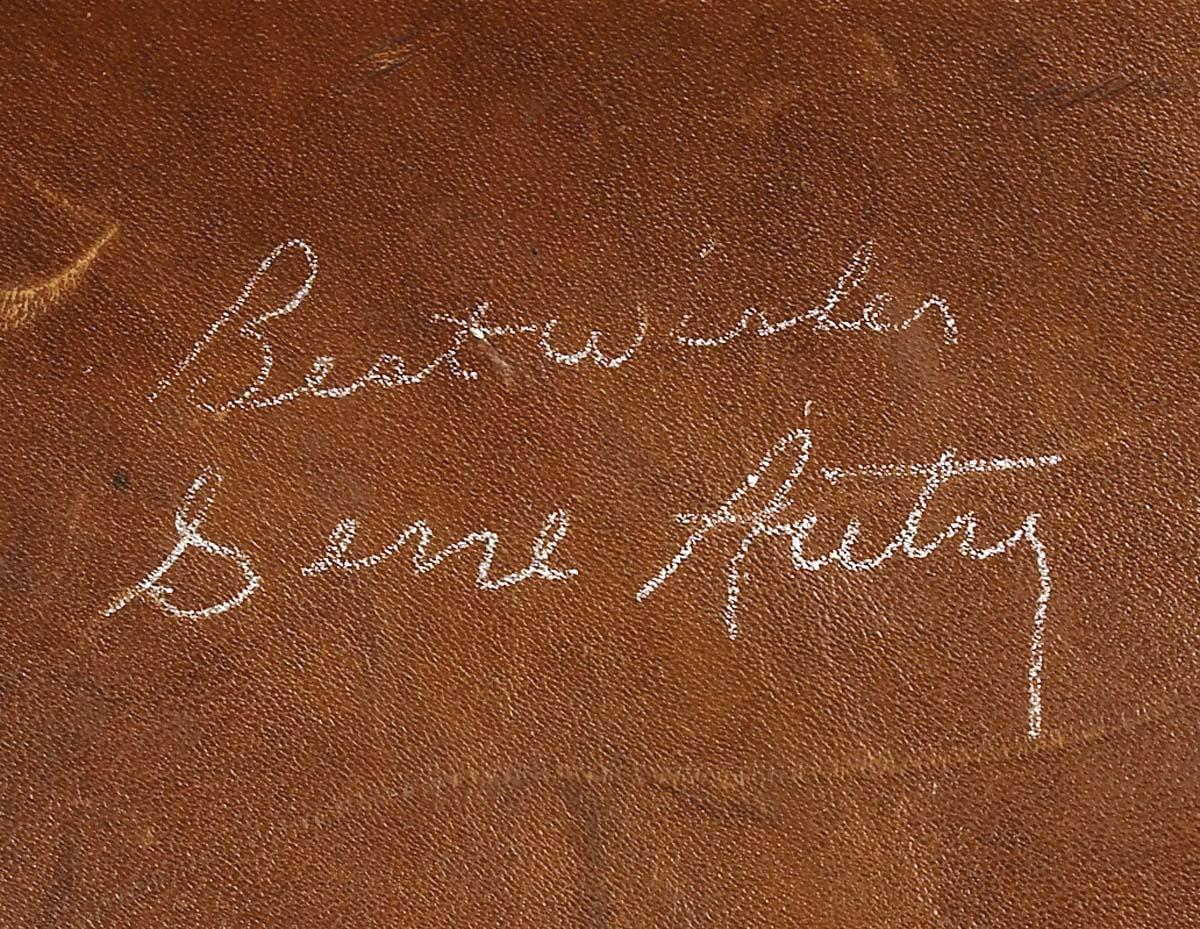 Best wishes
Gene Autry